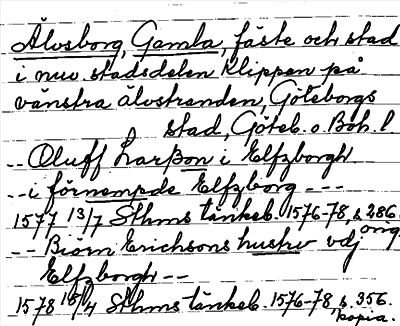 Älvsborg, Gamla, fäste och stad
i nuv. stadsdelen Klippen på
vänstra älvstranden, Göteborgs
stad, Göteb. o. Boh. l.
-- Oluff Larßon i Elfzborgh
-- i förnempde Elfzborg ---
1577 13/7 Sthms tänkeb. 1576-78, s. 286.
orig.
-- Biörn Erichsons hustrv vdj
Elfzborgh --
1578 15/4 Sthms tänkeb. 1576-78, s. 356.
kopia.